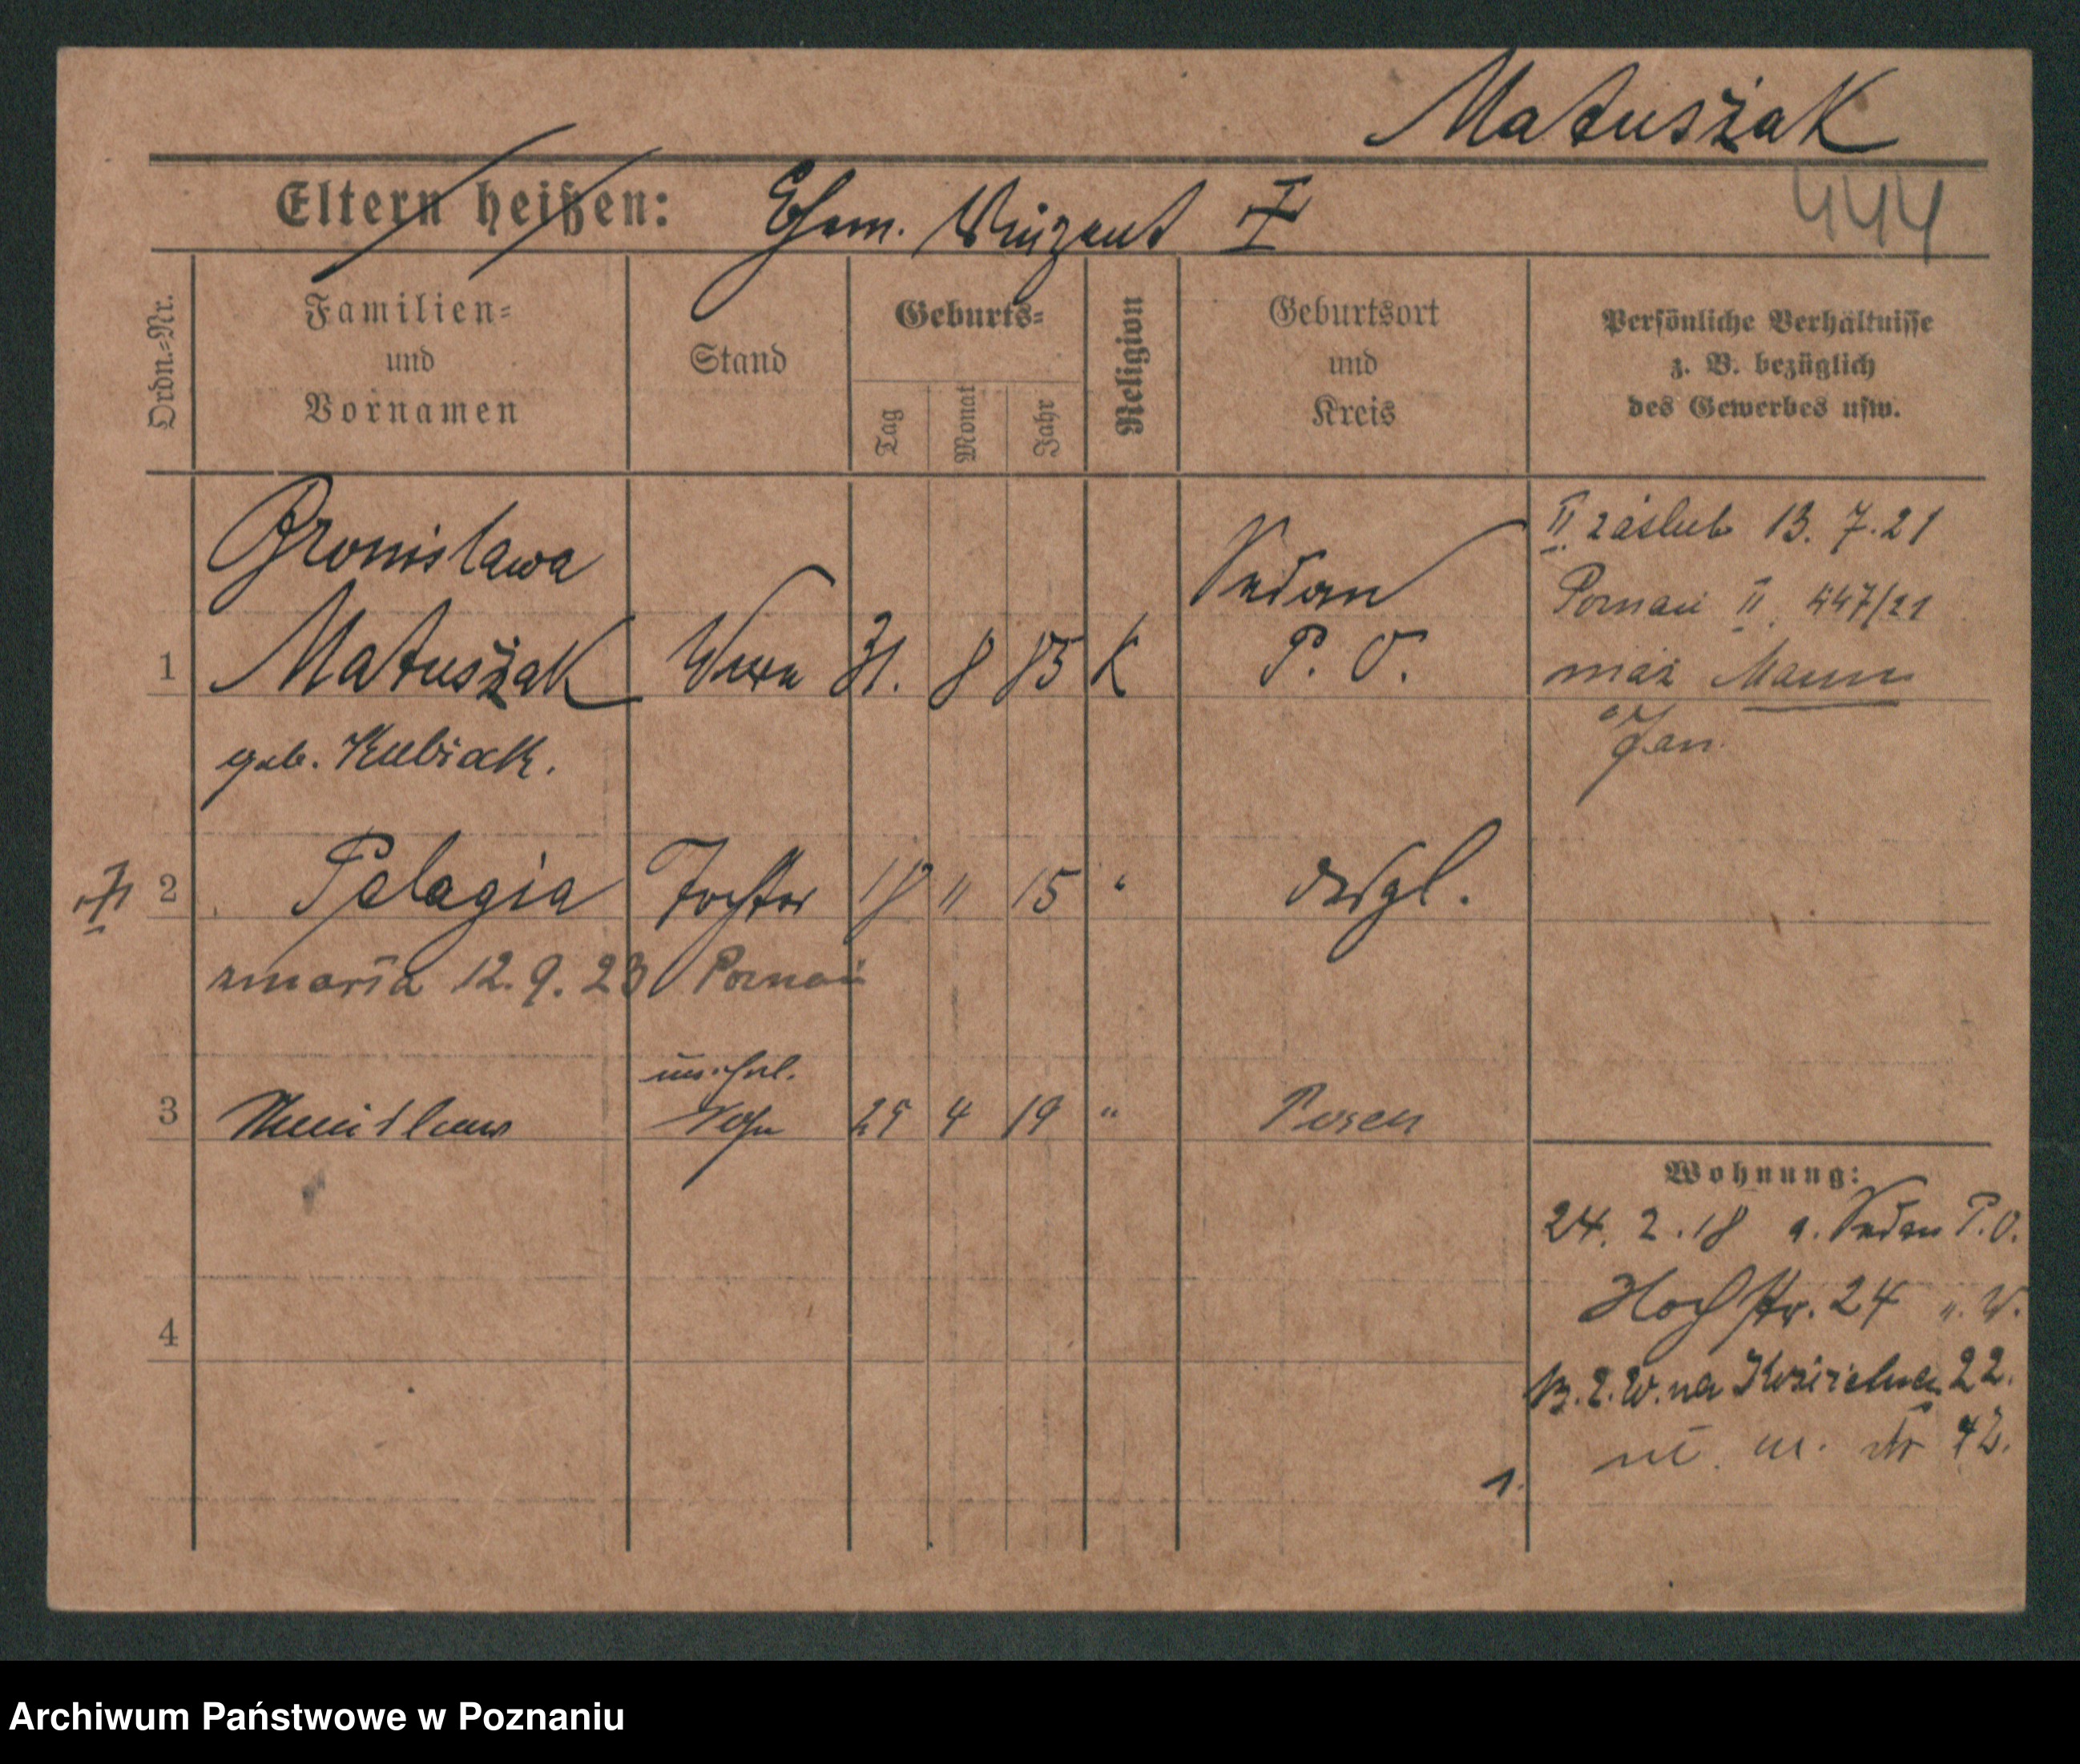 Matuszak
444
Eltern heißen: Ehem. Vinzent
Ordn.-Nr.
Familien-
und
Vornamen
Stand
Geburts-
Tag
Monat
Jahr
Religion
Geburtsort
und
Kreis
Persönliche Verhältnisse
z. B. bezüglich
des Gewerbes usw.
Bronisława
1 Matuszak 31. 8 85 K
geb. Kubiak.
Sedan
P. O.
II ząślub 13. 7. 21
Poznań II. 447/21
mąż Mann
Jan
2 Pelagia Tochter 18 " 15 " desgl.
zmarła 12. 9. 23 Poznań
unehel.
3 Sohn 25 4 19 " Posen
4
Wohnung:
24. 2. 18 a. Sedan P. O.
Hochstr. 24
22.
42.
1.
Archiwum Państwowe w Poznaniu